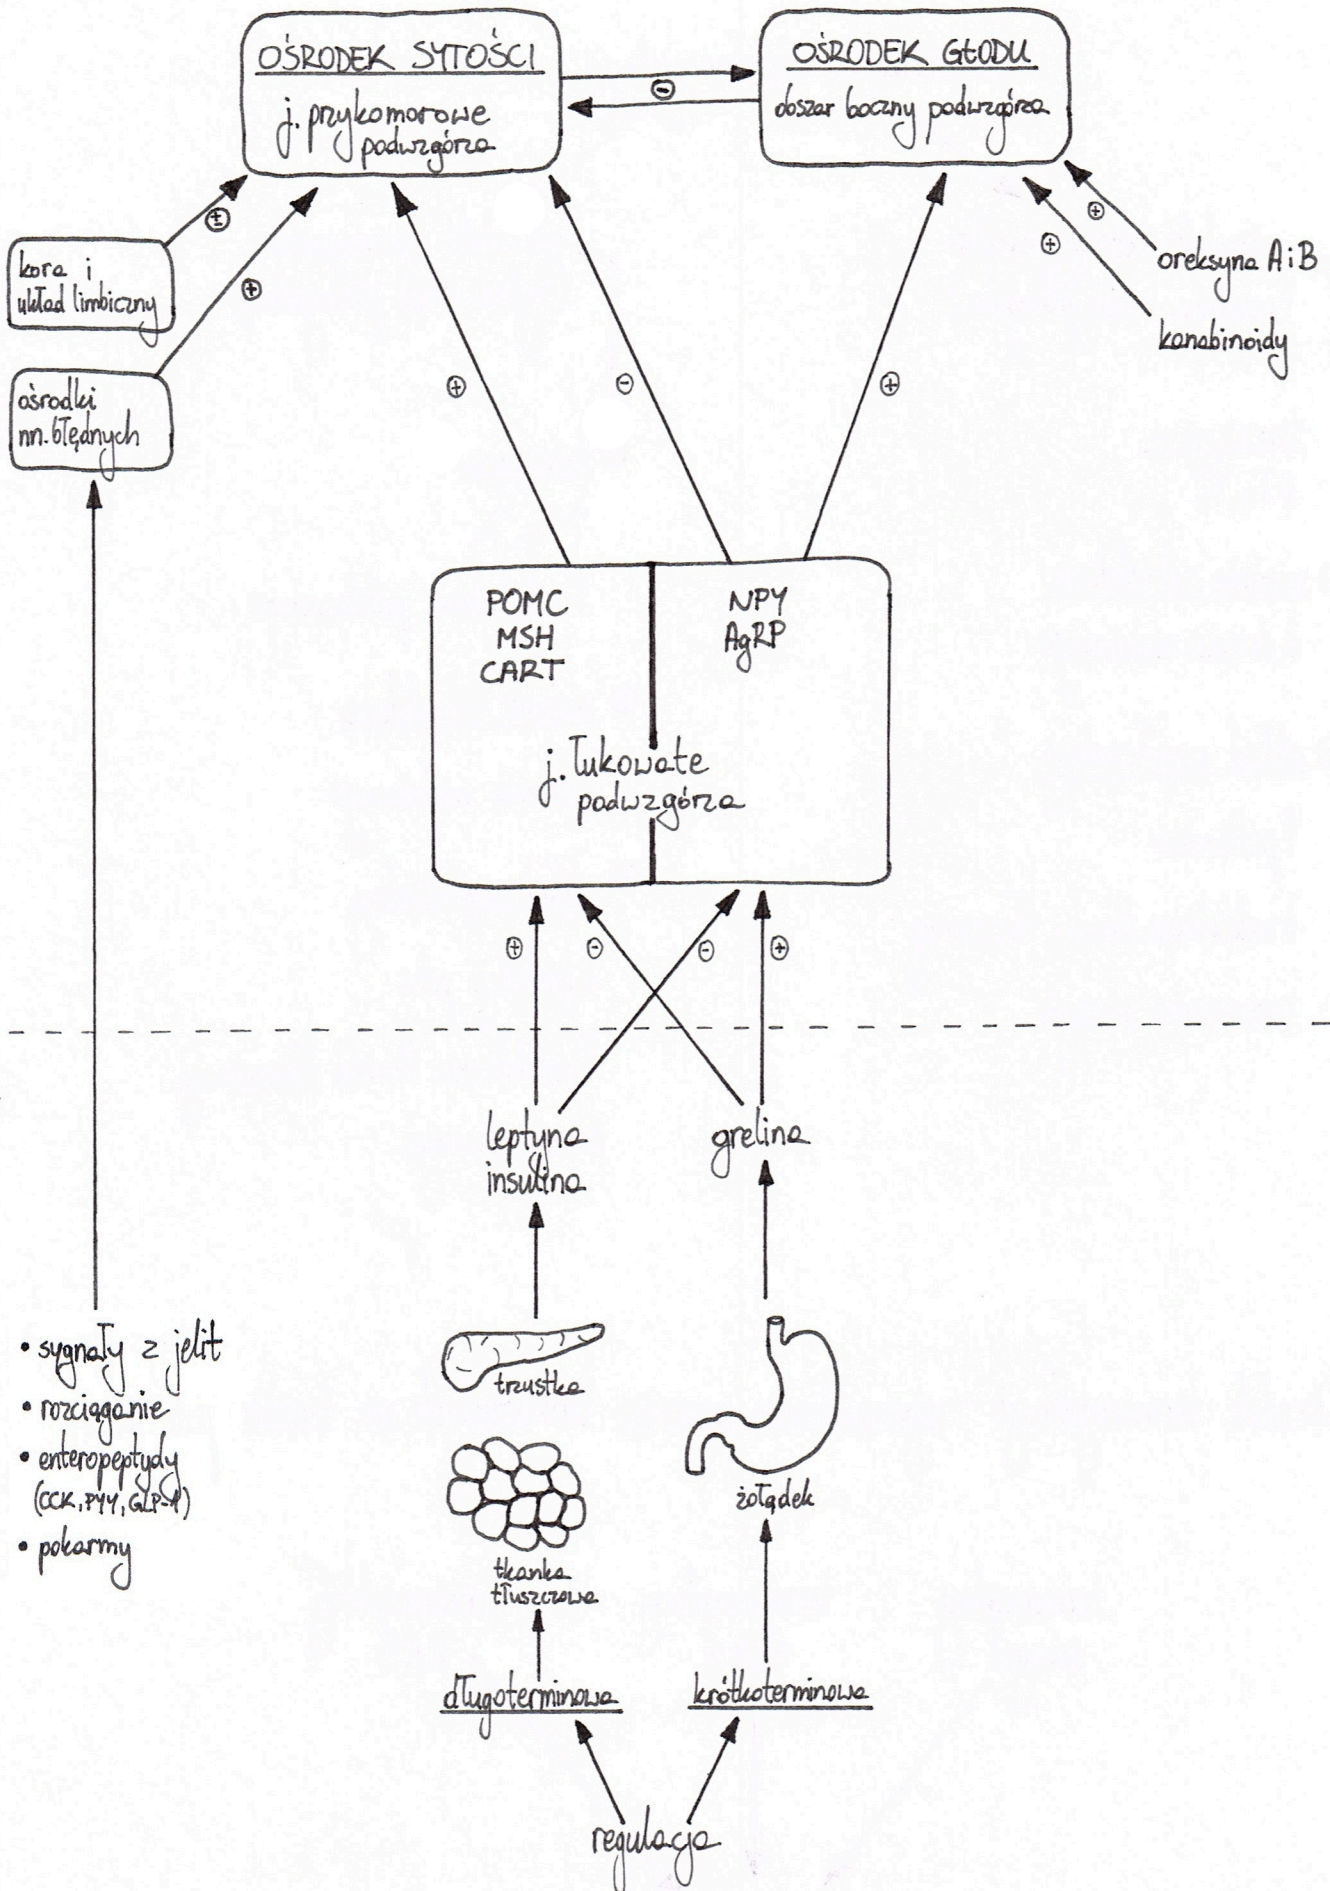 OŚRODEK SYTOŚCI
j. przykomorowe
podwzgórza
OŚRODEK GŁODU
obszar boczny podwzgórza
⊖
kora i
układ limbiczny
⊕
ośrodki
nn. błędnych
⊕
⊕
⊖
⊕
⊕
⊕
oreksyna A i B
kanabinoidy
POMC
MSH
CART
NPY
AgRP
j. łukowate
podwzgórza
⊕
⊖
⊖
⊕
leptyna
insulina
grelina
• sygnały z jelit
• rozciąganie
• enteropeptydy
(CCK, PYY, GLP-1)
• pokarmy
trzustka
tkanka
tłuszczowa
żołądek
długoterminowa
krótkoterminowa
regulacja